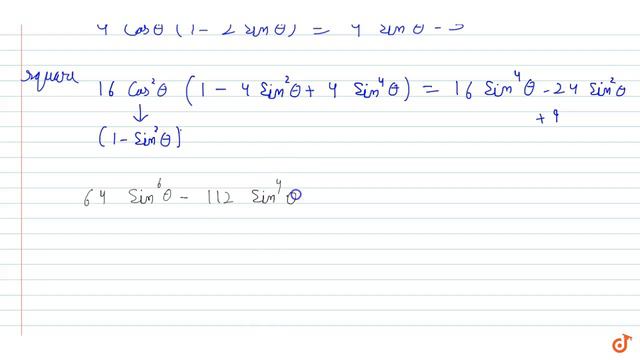 4 Cosθ (1 - 2 Sinθ) = 4 Sinθ - 3
Square 16 Cos²θ (1 - 4 Sin²θ + 4 Sin⁴θ) = 16 Sin⁴θ - 24 Sin²θ + 9
↓
(1 - Sin²θ)
64 Sin⁶θ - 112 Sin⁴θ